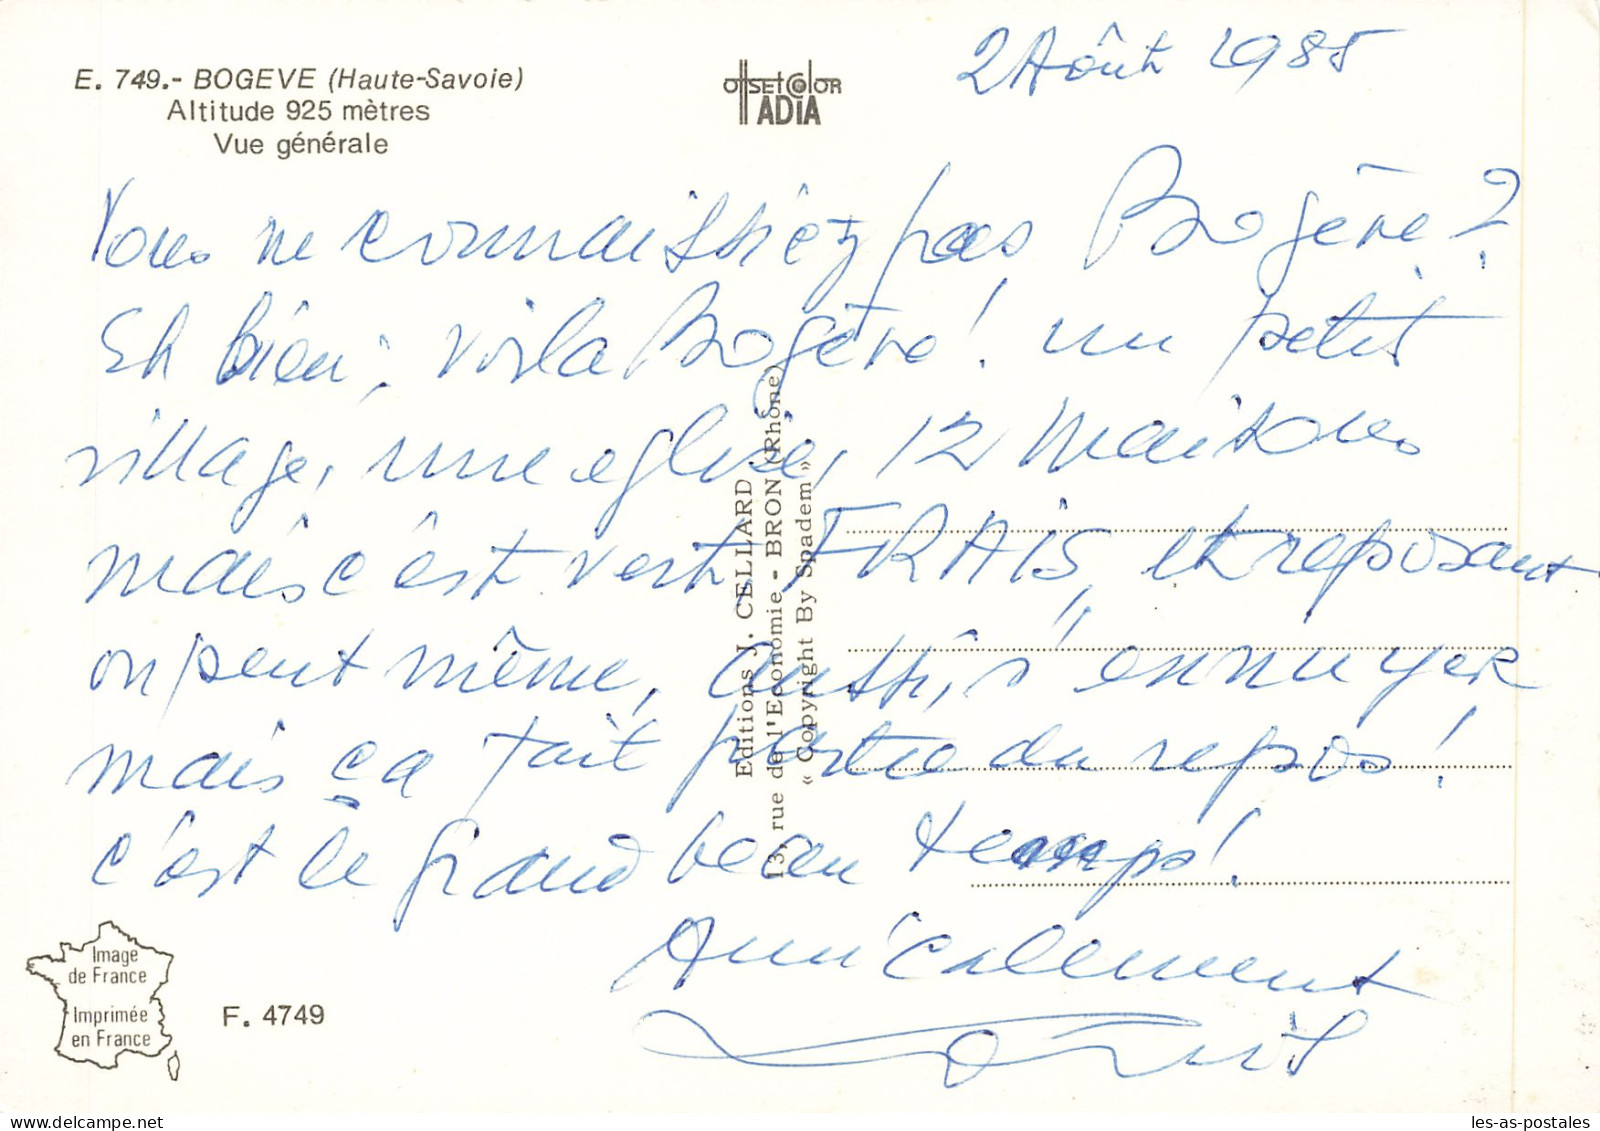 2 Août 1985
E. 749.- BOGEVE (Haute-Savoie)
Altitude 925 mètres
Vue générale
OffSET COLOR
ADIA
Vous ne connaissiez pas Bogève ?
Eh bien, voila Bogève ! un petit
village, une eglise, 12 maisons
mais c'est vert, FRAIS, et reposant
on peut même, aussi, s'ennuyer
mais ça fait partie du repos !
c'est le grand beau temps !
Amicalement
Louis
Editions J. CELLARD
13, rue de l'Economie - BRON (Rhône)
« Copyright By Spadem »
Image
de France
Imprimée
en France
F. 4749
les-as-postales